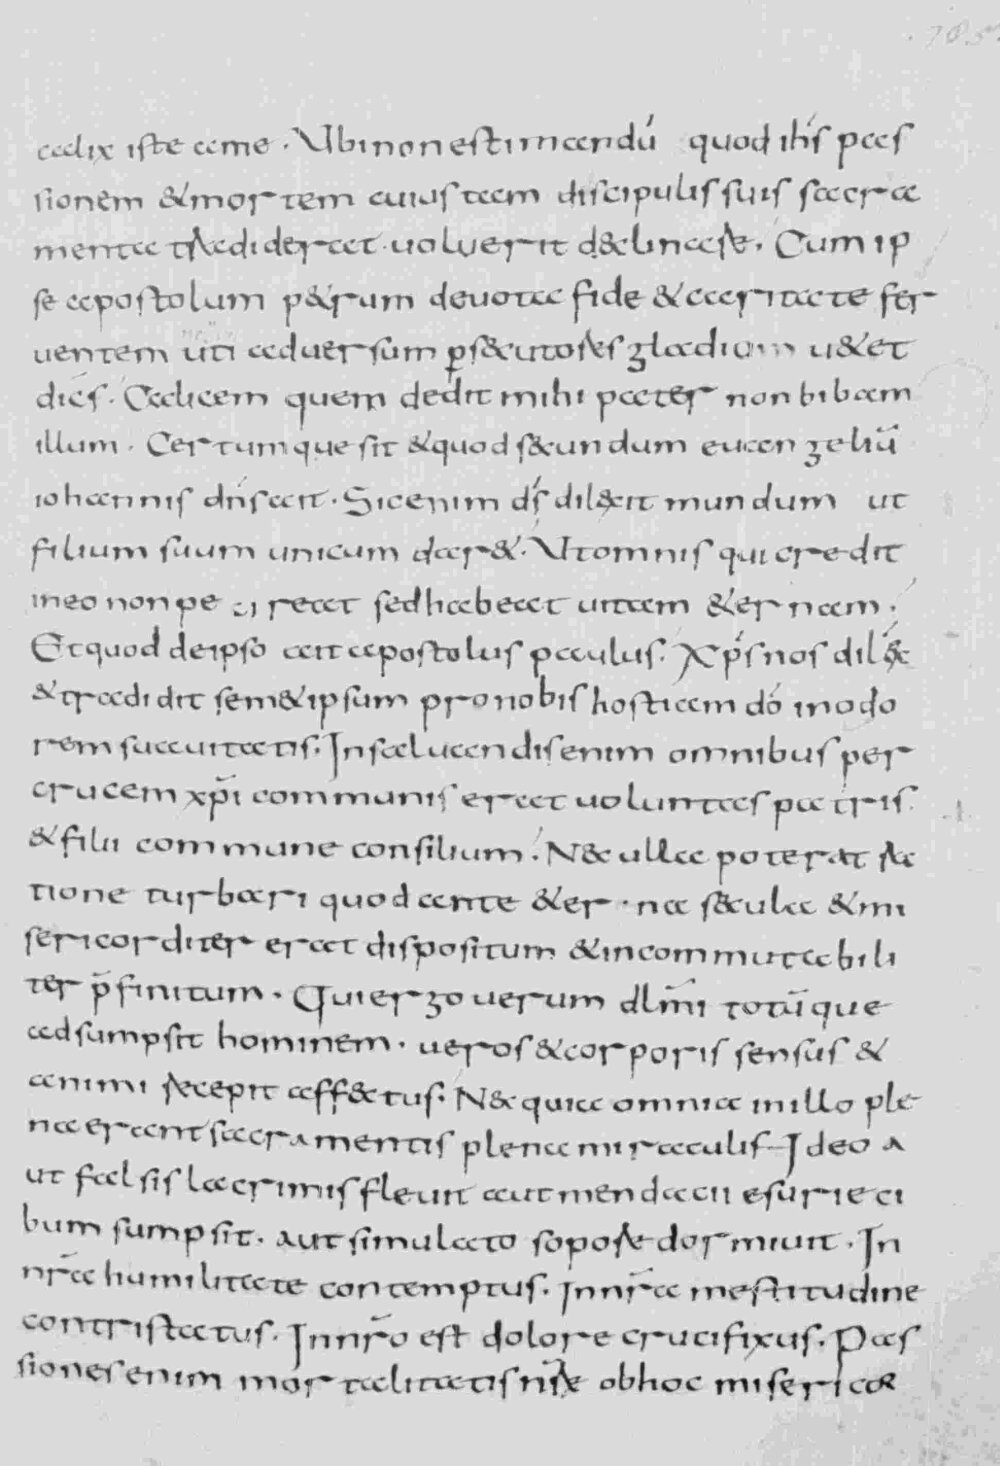 calix iste a me. Ubi non est timendū quod ihs pas
sionem & mortem cuius tam discipulis suis sacra
menta tradiderat uoluerit declinare. Cum ip
se apostolum p&rum deuota fide & caritate fer
uentem uti aduersum pers&utores gladium u&et
dicēs. Calicem quem dedit mihi pater non bibam
illum. Certumque sit & quod s&undum euangeliū
iohannis dn̄s ait. Sic enim dš dilexit mundum ut
filium suum unicum dar&. Ut omnis qui credit
in eo non pe reat sed habeat uitam &ernam.
Et quod de ipso ait apostolus paulus. Xp̄s nos dilex
& tradidit sem&ipsum pro nobis hostiam dō in odo
rem suauitatis. In saluandis enim omnibus per
crucem xp̄i communis erat uoluntas patris.
& filii commune consilium. N& ulla poterat ra
tione turbari quod ante &erna s&ula & mi
sericorditer erat dispositum & incommutabili
ter p̄finitum. Qui ergo uerum d l m̄i totūque
adsumpsit hominem. ueros & corporis sensus &
animi recepit aff&tus. N& quia omnia in illo ple
na erant sacramentis plena miraculis Ideo a
ut falsis lacrimis fleuit aut mendacii esurie ci
bum sumpsit. aut simulato sopore dormiuit. In
nr̄a humilitate contemptus. In nr̄a mestitudine
contristatus. In nr̄o est dolore crucifixus. Pas
siones enim mortalitatis nr̄e ob hoc misericor